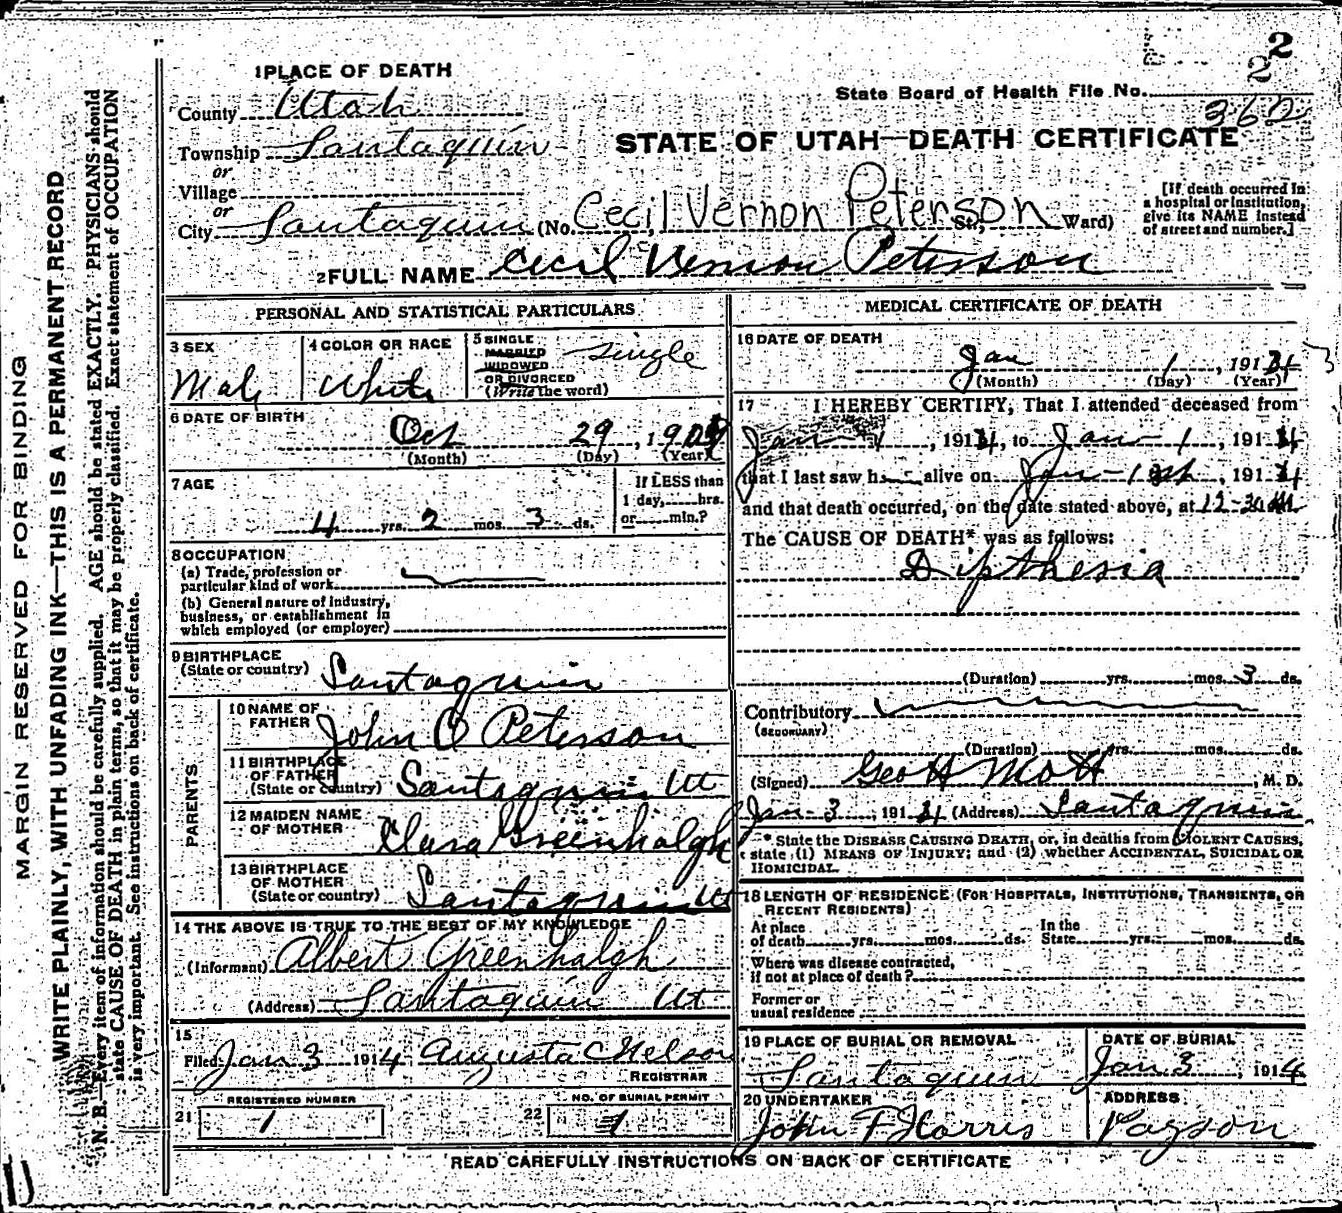 2
2
1 PLACE OF DEATH
State Board of Health File No.
362
County Utah
STATE OF UTAH—DEATH CERTIFICATE
Township Santaquin
or
Village
or
City Santaquin (No. Cecil Vernon Peterson St., Ward)
[If death occurred in
a hospital or institution,
give its NAME instead
of street and number.]
2 FULL NAME Cecil Vernon Peterson
PERSONAL AND STATISTICAL PARTICULARS
3 SEX
Male
4 COLOR OR RACE
White
5 SINGLE
MARRIED
WIDOWED
OR DIVORCED
(Write the word)
single
6 DATE OF BIRTH
Oct 29, 190
(Month) (Day) (Year)
7 AGE
4 yrs. 2 mos. 3 ds.
If LESS than
1 day, hrs.
or min.?
8 OCCUPATION
(a) Trade, profession or
particular kind of work
(b) General nature of industry,
business, or establishment in
which employed (or employer)
9 BIRTHPLACE
(State or country) Santaquin
PARENTS
10 NAME OF
FATHER John O Peterson
11 BIRTHPLACE
OF FATHER
(State or country) Santaquin Ut
12 MAIDEN NAME
OF MOTHER Clara Greenhalgh
13 BIRTHPLACE
OF MOTHER
(State or country) Santaquin Ut
14 THE ABOVE IS TRUE TO THE BEST OF MY KNOWLEDGE
(Informant) Albert Greenhalgh
(Address) Santaquin Ut
15
Filed Jan 3 1914 Augusta C Nelson
REGISTRAR
21
REGISTERED NUMBER
1
22
NO. OF BURIAL PERMIT
1
MEDICAL CERTIFICATE OF DEATH
16 DATE OF DEATH
Jan 1, 1914
(Month) (Day) (Year)
17 I HEREBY CERTIFY, That I attended deceased from
Jan 1, 1914, to Jan 1, 1914
that I last saw h alive on Jan 1st, 1914
and that death occurred, on the date stated above, at 12-30 AM
The CAUSE OF DEATH* was as follows:
Diptheria
(Duration) yrs. mos. 3 ds.
Contributory
(SECONDARY)
(Duration) yrs. mos. ds.
(Signed) Geo H Mott, M. D.
Jan 3, 1914 (Address) Santaquin
* State the DISEASE CAUSING DEATH, or, in deaths from VIOLENT CAUSES,
state (1) MEANS OF INJURY; and (2) whether ACCIDENTAL, SUICIDAL OR
HOMICIDAL.
18 LENGTH OF RESIDENCE (FOR HOSPITALS, INSTITUTIONS, TRANSIENTS, OR
RECENT RESIDENTS)
At place
of death yrs. mos. ds.
In the
State yrs. mos. ds.
Where was disease contracted,
if not at place of death?
Former or
usual residence
19 PLACE OF BURIAL OR REMOVAL
Santaquin
DATE OF BURIAL
Jan 3, 1914
20 UNDERTAKER
John F Harris
ADDRESS
Payson
READ CAREFULLY INSTRUCTIONS ON BACK OF CERTIFICATE
MARGIN RESERVED FOR BINDING
WRITE PLAINLY, WITH UNFADING INK—THIS IS A PERMANENT RECORD
N. B.—Every item of information should be carefully supplied. AGE should be stated EXACTLY. PHYSICIANS should
state CAUSE OF DEATH in plain terms, so that it may be properly classified. Exact statement of OCCUPATION
is very important. See instructions on back of certificate.